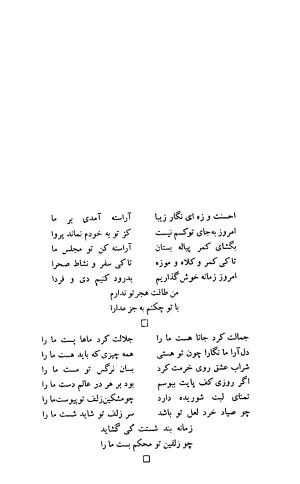 احسنت و زه ای نگار زیبا آراسته آمدی بر ما
امروز به‌جای توکسم نیست کز تو به خودم نماند پروا
بگشای کمر پیاله بستان آراسته کن تو مجلس ما
تاکی کمر و کلاه و موزه تاکی سفر و نشاط صحرا
امروز زمانه خوش گذاریم بدرود کنیم دی و فردا
من طاقت هجر تو ندارم
با تو چکنم به جز مدارا
جمالت کرد جانا هست ما را جلالت کرد ماها پست ما را
دل‌آرا ما نگارا چون تو هستی همه چیزی که باید هست ما را
شراب عشق روی خرمت کرد بسان نرگس تو مست ما را
اگر روزی کف پایت ببوسم بود بر هر دو عالم دست ما را
تمنای لبت شوریده دارد چو مشکین زلف تو پیوست ما را
چو صیاد خرد لعل تو باشد سر زلف تو شاید شست ما را
زمانه بند شستت کی گشاید
چو زلفین تو محکم بست ما را